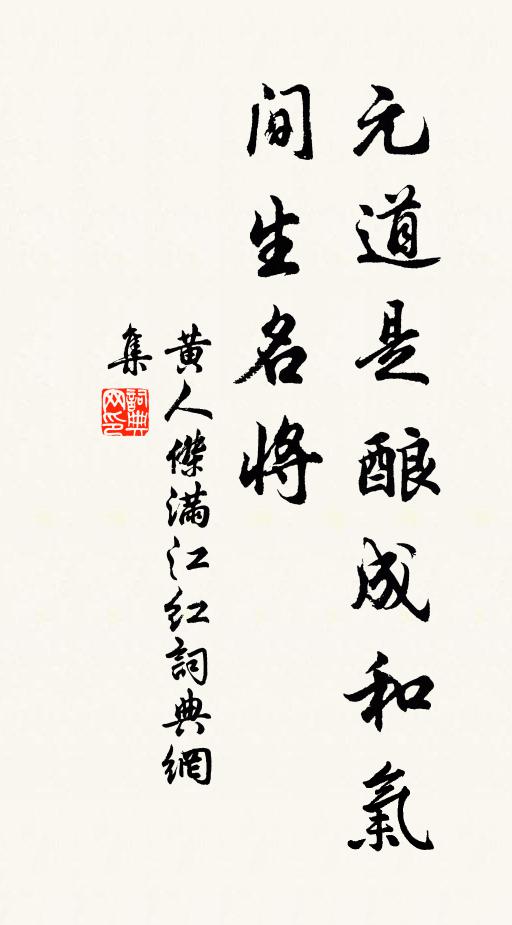 元道是酿成和氣
间生名将
黄人傑满江红詞典網
集
詞典
网印